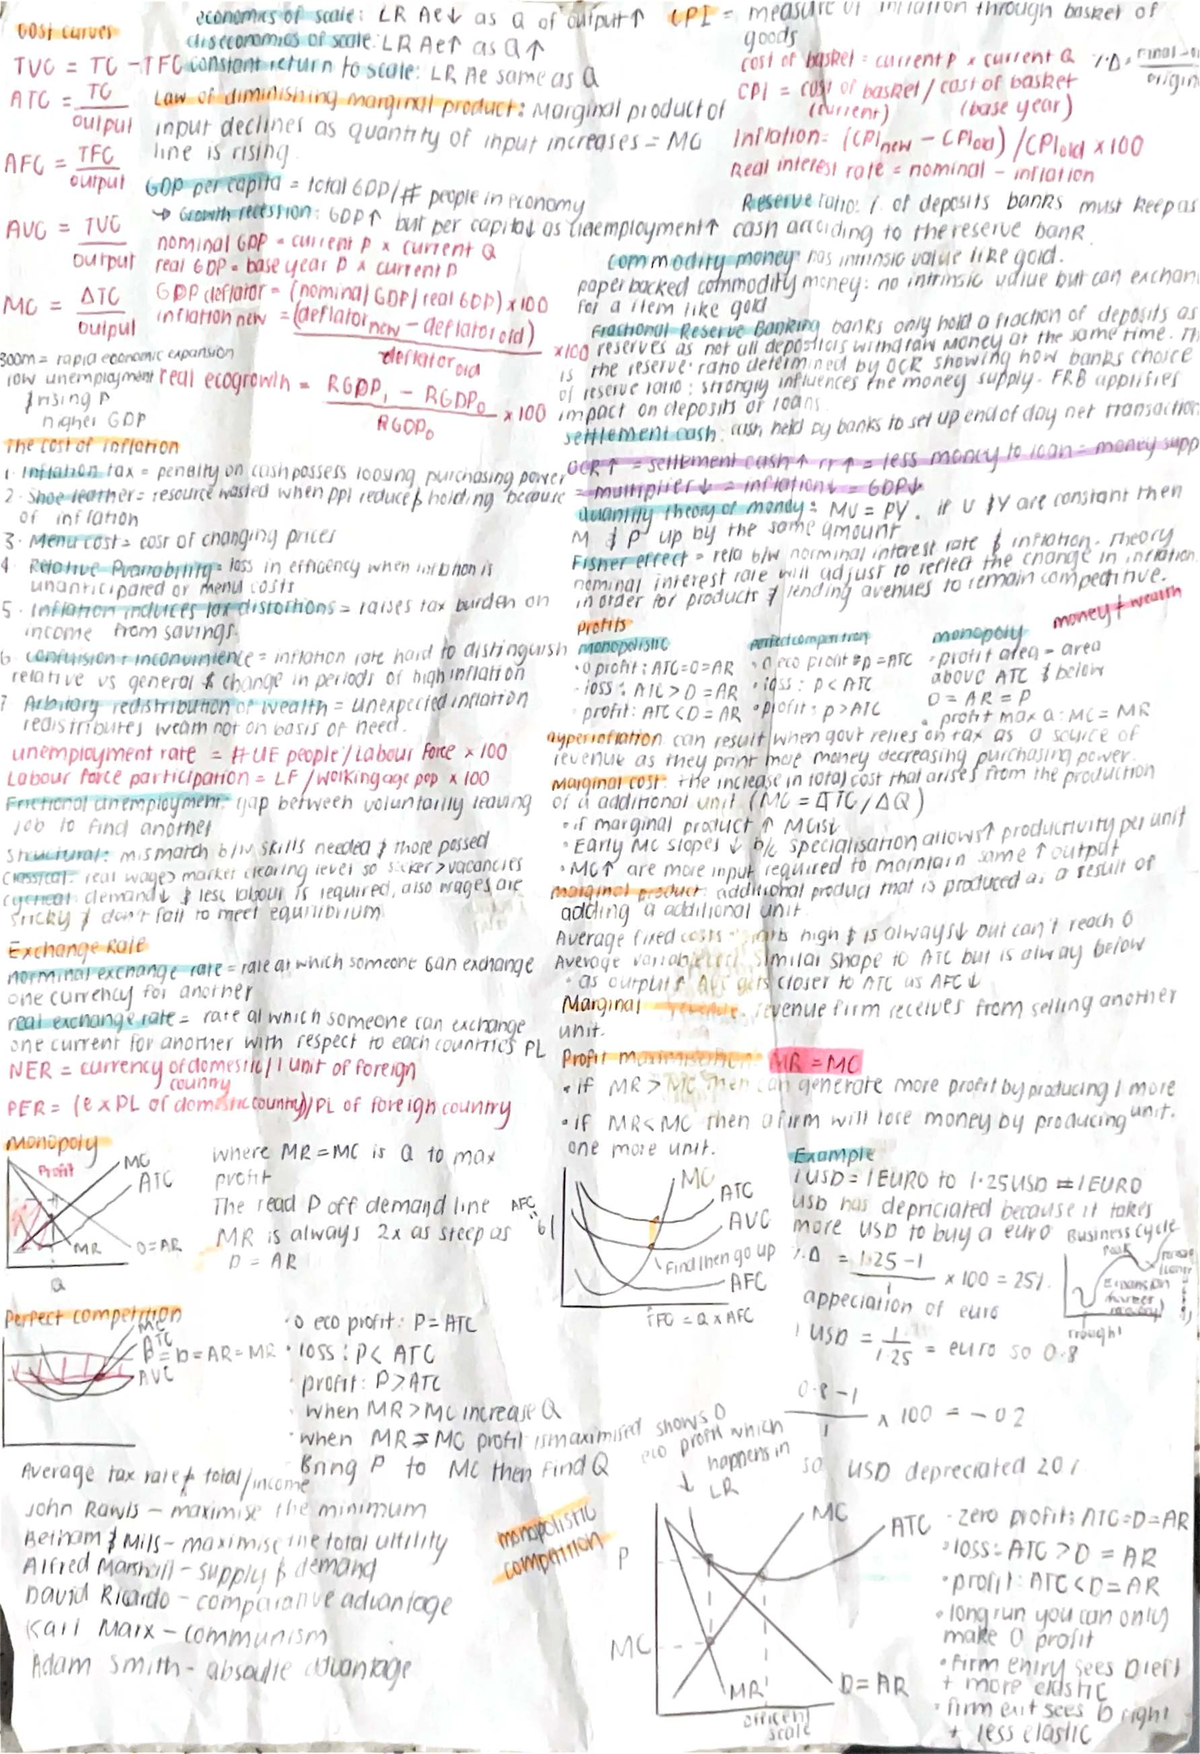 Cost curves
TVC = TC - TFC
ATC = TC
output
AFC = TFC
output
AVC = TVC
output
MC = ΔTC
output
economics of scale: LR Ac↓ as Q of output↑
diseconomics of scale: LR Ac↑ as Q↑
constant return to scale: LR Ac same as Q
Law of diminishing marginal product: Marginal product of
input declines as quantity of input increases = MC
line is rising
GDP per capita = total GDP/# people in economy
↳ Growth recession: GDP↑ but per capita↓ as unemployment↑
nominal GDP = current P x current Q
real GDP = base year P x current P
GDP deflator = (nominal GDP/real GDP) x 100
inflation new = (deflator new - deflator old)
deflator old
x100
Boom = rapid economic expansion
low unemployment
& rising P
higher GDP
real ecogrowth = RGDP₁ - RGDP₀ x 100
RGDP₀
The cost of inflation
1. Inflation tax = penalty on cash possess loosing purchasing power
2. Shoe leather = resource wasted when ppl reduce $ holding because
of inflation
3. Menu cost = cost of changing prices
4. Relative P variability = loss in efficency when inflation is
unanticipated or menu costs
5. Inflation induces tax distortions = raises tax burden on
income from savings.
6. confusion & inconvinience = inflation rate hard to distinguish
relative vs general $ change in periods of high inflation
7. Arbitory redistribution of wealth = unexpected inflation
redistributes wealth not on basis of need.
unemployment rate = # UE people/Labour Force x 100
Labour force participation = LF/working age pop x 100
Frictional unemployment: gap between voluntailly leaving
job to find another
Structural: mismatch b/w skills needed & those possed
Classical: real wage> market clearing level so seeker>vacancies
cyclical: demand↓ & less labour is required, also wages are
sticky & don't fall to meet equilibrium
Exchange Rate
norminal exchange rate = rate at which someone can exchange
one currency for another
real exchange rate = rate at which someone can exchange
one current for another with respect to each countries PL
NER = currency of domestic/1 unit of foreign
country
RER = (e x PL of domestic country)/PL of foreign country
Monopoly
Profit
MC
ATC
MR
D=AR
Q
where MR=MC is Q to max
profit
The read P off demand line
MR is always 2x as steep as
D = AR
Perfect competition
MC
ATC
P=D=AR=MR
AVC
· 0 eco profit: P=ATC
· loss: P< ATC
· profit: P>ATC
· when MR>MC increase Q
· when MR=MC profit is maximised
Bring P to MC then find Q
Average tax rate = total/income
John Rawls - maximise the minimum
Betham & Mills - maximise the total ultility
Alfred Marshall - supply & demand
David Ricardo - comparative advantage
Karl Marx - communism
Adam Smith - absoulte advantage
CPI = measure of inflation through basket of
goods
cost of basket = current P x current Q
%Δ =
origin
CPI = cost of basket/cost of basket
(current) (base year)
Inflation = (CPI new - CPI old)/CPI old x 100
Real interest rate = nominal - inflation
Reserve ratio: % of deposits banks must keep as
cash according to the reserve bank.
Commodity money: has intrinsic value like gold.
paper backed commodity money: no intrinsic value but can exchan
for a item like gold
Fractional Reserve Banking banks only hold a fraction of deposits as
reserves as not all depositors withdraw money at the same time. Th
is the reserve ratio determined by OCR showing how banks choice
of reserve ratio: strongly influences the money supply. FRB applifies
impact on deposits or loans.
settlement cash: cash held by banks to set up end of day net transaction
OCR↑ = settlement cash↑ rr↑ = less money to loan = money supp
= multiplier↓ = inflation↓ = GDP↓
Quantity theory of money: MV = PY. if V & Y are constant then
M & P up by the same amount
Fisher effect = rela b/w norminal interest rate & inflation. Theory
nominal interest rate will adjust to reflect the change in inflation
in order for products & lending avenues to remain competitive.
Profits
money ≠ wealth
monopolistic
· 0 profit: ATC=D=AR
· loss: ATC>D=AR
profit: ATC<D=AR
perfect competition
· 0 eco profit P=ATC
· loss: P< ATC
· profit: P>ATC
monopoly
· profit area = area
above ATC & below
D = AR = P
· profit max Q: MC = MR
Hyperinflation can result when govt relies on tax as a source of
revenue as they print more money decreasing purchasing power.
Marginal cost: the increase in total cost that arises from the production
of a additional unit (MC = ΔTC/ΔQ)
· Early MC slopes ↓ b/c specialisation allows↑ productivity per unit
· MC↑ are more input required to maintain same ↑ output
marginal product: additional product that is produced as a result of
adding a additional unit
Average fixed costs high & is always↓ but can't reach 0
Average variable similar shape to ATC but is alway below
· as output↑ AVC gets closer to ATC as AFC↓
Marginal revenue: revenue firm receives from selling another
unit.
Profit maximisation: MR = MC
· if MR > MC then can generate more profit by producing 1 more
unit.
· if MR< MC then a firm will lose money by producing
one more unit.
MC
ATC
AVC
Find then go up
AFC
TFC = Q x AFC
Example
1 USD = 1 EURO to 1.25 USD = 1 EURO
USD has depriciated because it takes
more USD to buy a euro
%Δ = 1.25 - 1 x 100 = 25%.
1
appeciation of euro
1 USD = 1 = euro so 0.8
1.25
0.8 - 1 x 100 = -02
1
so USD depreciated 20%
Business cycle
Peak
Expansion
Trough
monopolistic
competition
shows 0
eco profit which
happens in
LR
P
MC
MC
ATC
MR
D=AR
efficient
scale
· zero profit: ATC=D=AR
· loss: ATC >D = AR
· profit: ATC<D=AR
· long run you can only
make 0 profit
· firm entry sees D left
+ more elastic
· firm exit sees D right
+ less elastic